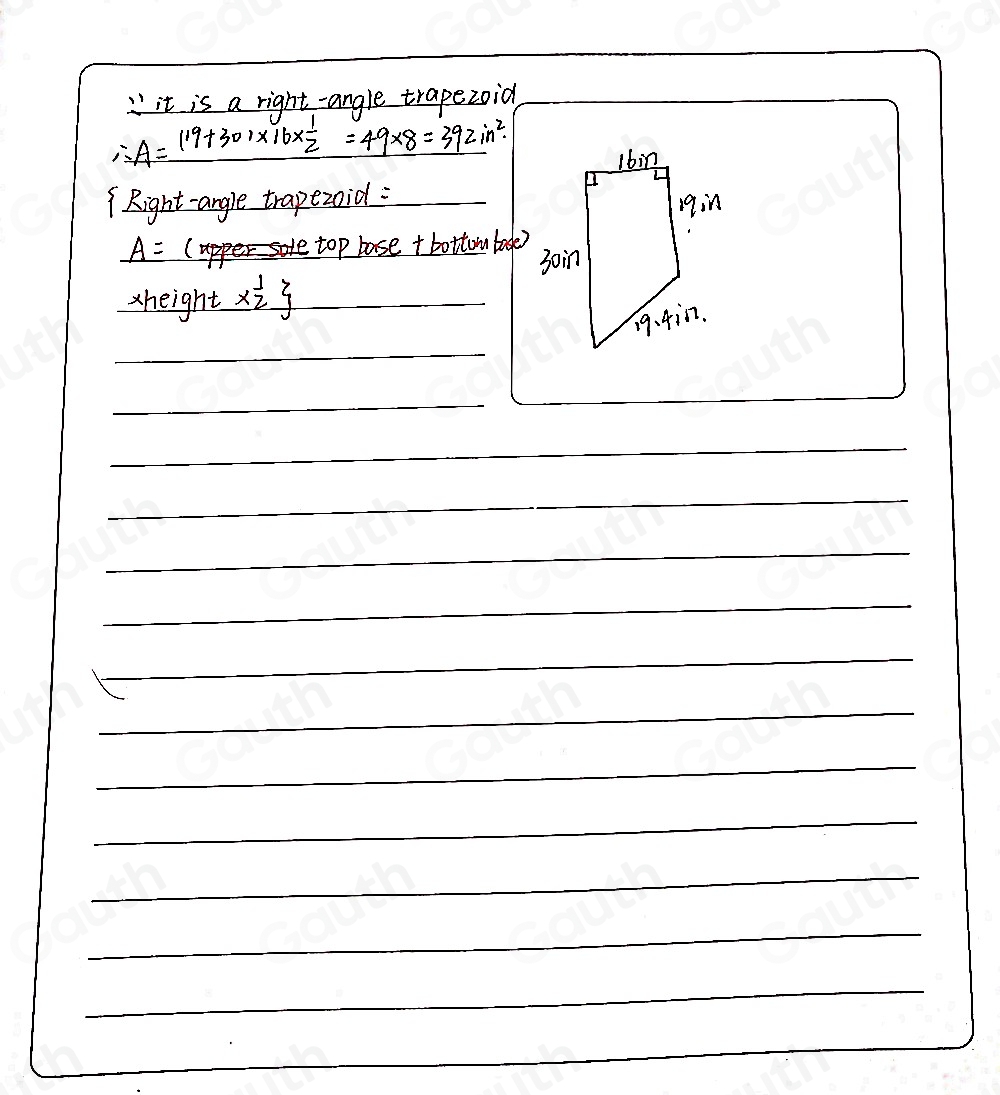 ∵ it is a right-angle trapezoid
∴A= (19+30)×16×1/2 = 49×8 = 392in².
{ Right-angle trapezoid:
A = (upper sole top base + bottom base)
×height ×1/2 }
16in
19in
30in
19.4in.
Gauth